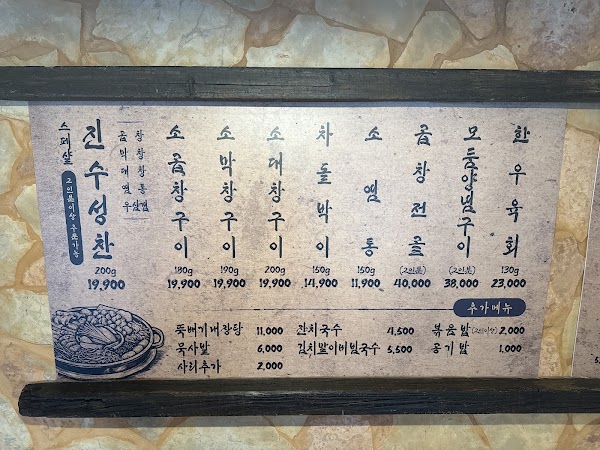 스페샬
진수성찬
2인분이상 주문가능
곱창
막창
대창
염통
우삼겹
200g
19,900
소곱창구이
180g
19,900
소막창구이
190g
19,900
소대창구이
200g
19,900
차돌박이
150g
14,900
소염통
150g
11,900
곱창전골
(2인분)
40,000
모듬양념구이
(2인분)
38,000
한우육회
130g
23,000
추가메뉴
뚝배기내장탕 11,000
묵사발 6,000
사리추가 2,000
잔치국수 4,500
김치말이비빔국수 5,500
볶음밥(2인이상) 2,000
공기밥 1,000